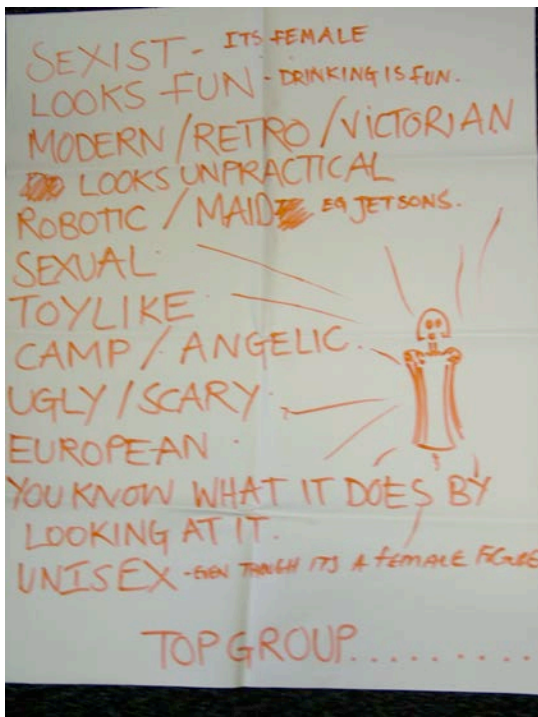 SEXIST - ITS FEMALE
LOOKS FUN - DRINKING IS FUN.
MODERN / RETRO / VICTORIAN
LOOKS UNPRACTICAL
ROBOTIC / MAID EG JETSONS.
SEXUAL
TOYLIKE
CAMP / ANGELIC
UGLY / SCARY
EUROPEAN
YOU KNOW WHAT IT DOES BY
LOOKING AT IT.
UNISEX - EVEN THOUGH ITS A FEMALE FIGURE
TOP GROUP.........